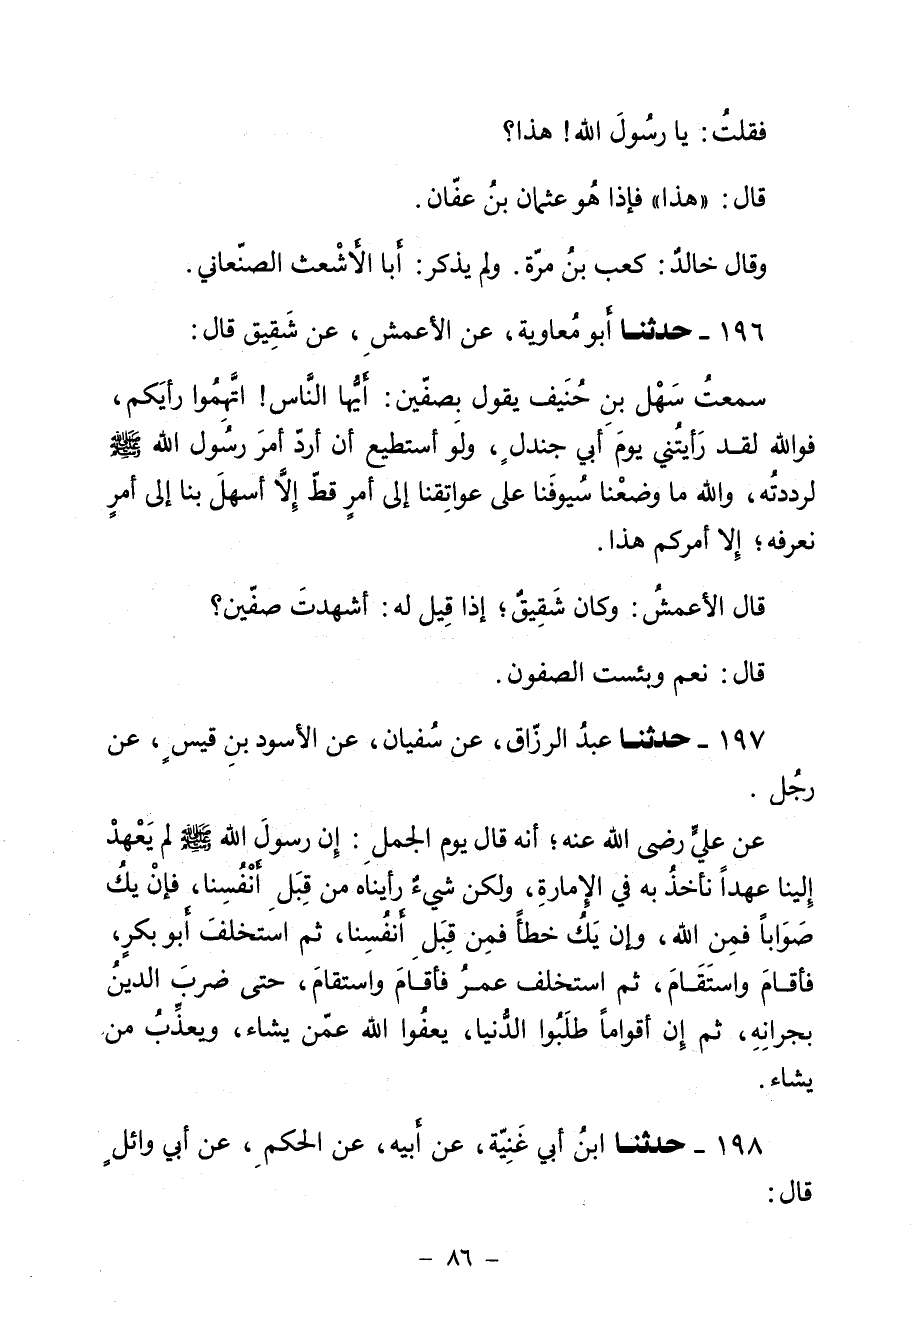 فقلتُ: يا رسُولَ الله! هذا؟
قال: «هذا» فإذا هُو عثمان بنُ عفّان.
وقال خالدٌ: كعب بنُ مرّة. ولم يذكر: أَبا الأَشْعث الصنّعاني.
١٩٦ ـ حدثنـا أَبو مُعاوية، عن الأعمشِ، عن شَقِيق قال:
سمعتُ سَهْل بنِ حُنَيف يقول بِصفّين: أَيُّها النَّاس! اتَّهِمُوا رأيَكم،
فوالله لقـد رَأيتُني يومَ أبي جندلٍ، ولو أستطيع أن أردّ أمرَ رسُول الله ﷺ
لرددتُه، والله ما وضعْنا سُيوفَنا على عواتِقنا إلى أمرٍ قطّ إِلَّا أسهلَ بنا إلى أمرٍ
نعرفه؛ إِلا أمركم هذا.
قال الأعمشُ: وكان شَقِيقٌ؛ إذا قِيل له: أشهدتَ صفّين؟
قال: نعم وبئست الصفون.
١٩٧ ـ حدثنـا عبدُ الرزّاق، عن سُفيان، عن الأسود بنِ قيسٍ، عن
رجُل.
عن عليٍّ رضى الله عنه؛ أنه قال يوم الجملِ: إِن رسولَ الله ﷺ لم يَعْهدْ
إِلينا عهداً نأخذُ به في الإِمارةِ، ولكن شيءٌ رأيناه من قِبَلِ أَنْفُسِنا، فإنْ يكُ
صَوَاباً فمِن الله، وإن يَكُ خطأً فمِن قِبَلِ أَنفُسِنا، ثم استخلفَ أَبو بكرٍ،
فأقـامَ واستَقَـامَ، ثم استخلف عمـرُ فأقـامَ واستقامَ، حتى ضربَ الدينُ
بجرانِهِ، ثم إِن أقواماً طلَبُوا الدُّنيا، يعفُوا الله عمّن يشاء، ويعذِّبُ من
يشاء.
١٩٨ ـ حدثنـا ابنُ أبي غَنِيّة، عن أَبيه، عن الحكمِ، عن أبي وائلٍ
قال:
- ٨٦ -